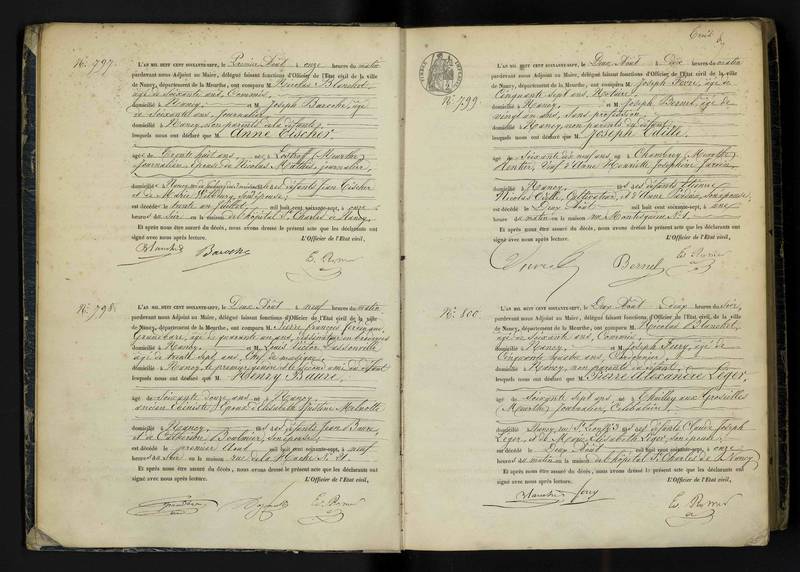 No. 797.
L'AN MIL HUIT CENT SOIXANTE-SEPT, le Premier Août à onze heures du matin
pardevant nous Adjoint au Maire, délégué faisant fonctions d'Officier de l'Etat civil de la ville
de Nancy, département de la Meurthe, ont comparu M. Nicolas Blanchet,
âgé de soixante ans, Commis,
domicilié à Nancy, et M. Joseph Baroche, âgé
de soixante ans, journalier,
domicilié à Nancy non parents de la défunte,
lesquels nous ont déclaré que M. Anne Tischer
âgée de Trente huit ans, née à (Meurthe)
journalière, épouse de Nicolas Mathis, journalier,
domiciliée à Nancy, fille des défunts Jean Tischer
et de Marie son épouse;
est décédée le trente un juillet mil huit cent soixante-sept, à onze
heures du soir en la maison de l'hôpital St Charles de Nancy.
Et après nous être assuré du décès, nous avons dressé le présent acte que les déclarants ont
signé avec nous après lecture. L'Officier de l'Etat civil,
Blanchet Baroche
No. 798.
L'AN MIL HUIT CENT SOIXANTE-SEPT, le Deux Août à neuf heures du matin
pardevant nous Adjoint au Maire, délégué faisant fonctions d'Officier de l'Etat civil de la ville
de Nancy, département de la Meurthe, ont comparu M. Pierre François
âgé de quarante un ans, Dessinateur en broderies
domicilié à Nancy, et M. Louis Victor
âgé de trente sept ans, Chef de musique,
domicilié à Nancy, le premier gendre et le second ami du défunt
lesquels nous ont déclaré que M. Henry Baure,
âgé de Soixante douze ans, né à Nancy,
ancien Ebéniste, époux d'Elisabeth
domicilié à Nancy, fils des défunts Jean Baure,
et de Catherine son épouse;
est décédé le premier Août mil huit cent soixante-sept, à neuf
heures du soir en la maison rue de la Hache No. 21.
Et après nous être assuré du décès, nous avons dressé le présent acte que les déclarants ont
signé avec nous après lecture. L'Officier de l'Etat civil,
No. 799.
L'AN MIL HUIT CENT SOIXANTE-SEPT, le Deux Août à Dix heures du matin
pardevant nous Adjoint au Maire, délégué faisant fonctions d'Officier de l'Etat civil de la ville
de Nancy, département de la Meurthe, ont comparu M. Joseph âgé de
Cinquante sept ans, Notaire,
domicilié à Nancy, et M. Joseph Bernel, âgé de
vingt un ans, sans profession,
domicilié à Nancy non parents du défunt,
lesquels nous ont déclaré que M. Joseph
âgé de Soixante dix neuf ans, né à Chambrey (Meurthe)
Rentier, Veuf d'Anne Henriette Joséphine
domicilié à Nancy, fils des défunts Etienne
Nicolas Cultivateur, et d'Anne son épouse;
est décédé le Deux Août mil huit cent soixante-sept, à une
heure du matin en la maison rue Montesquieu No. 1.
Et après nous être assuré du décès, nous avons dressé le présent acte que les déclarants ont
signé avec nous après lecture. L'Officier de l'Etat civil,
Bernel
No. 800.
L'AN MIL HUIT CENT SOIXANTE-SEPT, le Deux Août à Deux heures du soir,
pardevant nous Adjoint au Maire, délégué faisant fonctions d'Officier de l'Etat civil de la ville
de Nancy, département de la Meurthe, ont comparu M. Nicolas Blanchet,
âgé de Soixante ans, Commis,
domicilié à Nancy, et M. Joseph Ferry, âgé de
Cinquante quatre ans, Cordonnier,
domicilié à Nancy, non parents du défunt,
lesquels nous ont déclaré que M. Pierre Alexandre Léger,
âgé de Soixante sept ans, né à Chailly aux Groseilles
(Meurthe) journalier, Célibataire,
domicilié à Nancy, fils des défunts Claude Joseph
Léger, et de Marie Elisabeth Léger, son épouse;
est décédé le Deux Août mil huit cent soixante-sept, à onze
heures du matin en la maison de l'hôpital St Charles de Nancy.
Et après nous être assuré du décès, nous avons dressé le présent acte que les déclarants ont
signé avec nous après lecture. L'Officier de l'Etat civil,
Blanchet Ferry